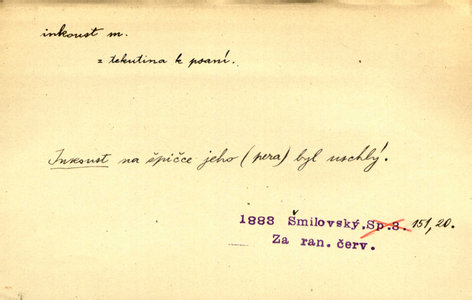 inkoust m.
= tekutina k psaní.
Inkoust na špičce jeho (pera) byl uschlý.
1883 Šmilovský.Sp.3. 151,20.
Za ran. červ.